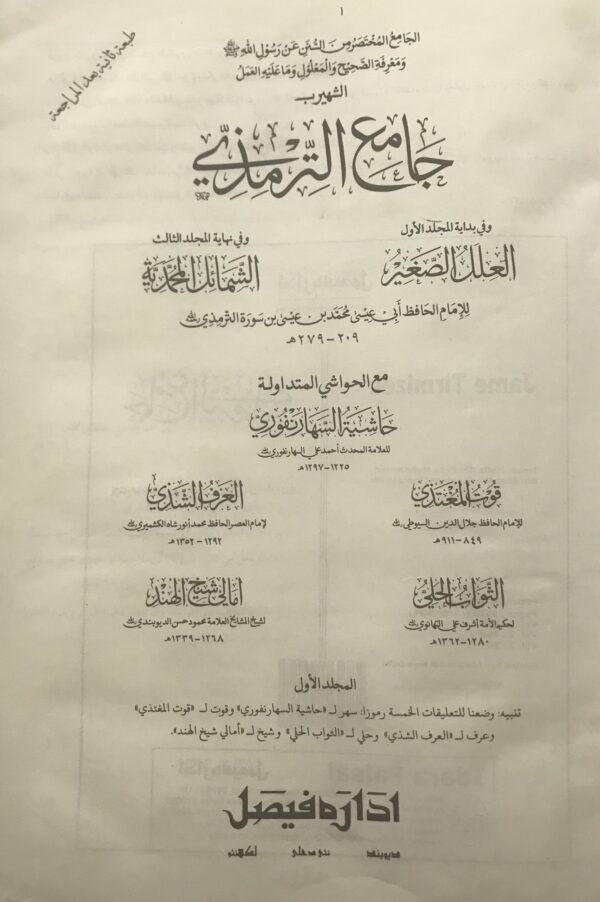 ١
طبعة ثانية بعد المراجعة
الجَامِعُ المُخْتَصَرُ مِنَ السُّنَنِ عَنْ رَسُوْلِ اللهِ ﷺ
وَمَعْرِفَةِ الصَّحِيْحِ وَالْمَعْلُوْلِ وَمَا عَلَيْهِ العَمَلُ
الشهير ب
جَامِعُ التِّرْمِذِيِّ
وفي بداية المجلد الأول
العِلَلُ الصَّغِيْرُ
وفي نهاية المجلد الثالث
الشَّمَائِلُ المُحَمَّدِيَّةُ
لِلإِمَامِ الحَافِظِ أَبِيْ عِيْسٰى مُحَمَّد بْن عِيْسٰى بن سَوْرَة الترمذِيِّ
٢٠٩-٢٧٩هـ
مع الحواشي المتداولة
حَاشِيَةُ السَّهَارَنْفُوْرِيّ
للعلامة المحدث أحمد علي السهارنفوري
١٢٢٥-١٢٩٧هـ
قُوْتُ المُغْتَذِيْ
للإمام الحافظ جلال الدين السيوطي
٨٤٩-٩١١هـ
العَرْفُ الشَّذِيْ
لإمام العصر الحافظ محمد أنور شاه الكشميري
١٢٩٢-١٣٥٢هـ
الثَّوَابُ الحُلِيُّ
لحكيم الأمة أشرف علي التهانوي
١٢٨٠-١٣٦٢هـ
أمَالِيْ شَيْخِ الهِنْد
لشيخ المشايخ العلامة محمود حسن الديوبندي
١٢٦٨-١٣٣٩هـ
المجلد الأول
تنبيه: وضعنا للتعليقات الخمسة رموزا: سهر لـ «حاشية السهارنفوري» وقوت لـ «قوت المغتذي»
وعرف لـ «العرف الشذي» وحلي لـ «الثواب الحلي» وشيخ لـ «أمالي شيخ الهند».
ادارہ فیصل
دیوبند نئی دہلی لکھنؤ